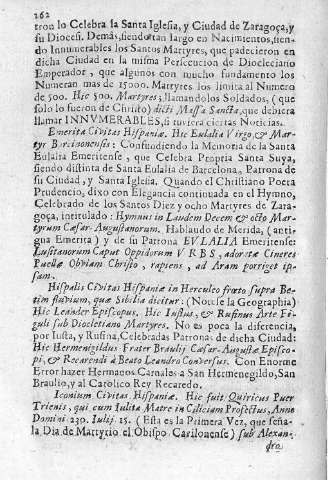 262
tron lo Celebra la Santa Iglesia, y Ciudad de Zaragoça, y
su Diocesi. Demàs, siendo tan largo en Nacimientos, sien-
do Innumerables los Santos Martyres, que padecieron en
dicha Ciudad en la misma Persecucion de Diocleciano
Emperador, que algunos con mucho fundamento los
Numeran mas de 15000. Martyres los limita al Numero
de 500. Hic 500. Martyres, llamandolos Soldados, (que
solo lo fueron de Christo) dicti Massa Sancta, que debiera
llamar INNVMERABLES, si tuviera ciertas Noticias.
Emerita Civitas Hispaniæ. Hic Eulalia Virgo, & Mar-
tyr Barcinonensis: Confundiendo la Memoria de la Santa
Eulalia Emeritense, que Celebra Propria Santa Suya,
siendo distinta de Santa Eulalia de Barcelona, Patrona de
su Ciudad, y Santa Iglesia. Quando el Christiano Poeta
Prudencio, dixo con Elegancia continuada en el Hymno,
Celebrado de los Santos Diez y ocho Martyres de Zara-
goça, intitulado: Hymnus in Laudem Decem & octo Mar-
tyrum Cæsar-Augustanorum. Hablando de Merida, (anti-
gua Emerita) y de su Patrona EVLALIA Emeritense:
Lusitanorum Caput Oppidorum VRBS, adoratæ Cineres
Puellæ Obviam Christo, rapiens, ad Aram porriget ip-
sam.
Hispalis Civitas Hispaniæ in Herculeo fræto supra Be-
tim fluvium, quæ Sibilia dicitur: (Notese la Geographia)
Hic Leander Episcopus. Hic Iustus, & Rufinus Arte Fi-
guli sub Diocletiano Martyres. No es poca la diferencia,
por Iusta, y Rufina, Celebradas Patronas de dicha Ciudad:
Hic Hermenigildus Frater Braulij Cæsar-Augustæ Episco-
pi, & Recaredi à Beato Leandro Conversus. Con Enorme
Error hazer Hermanos Carnales à San Hermenegildo, San
Braulio, y al Catolico Rey Recaredo.
Iconium Civitas Hispaniæ. Hic fuit Quiricus Puer
Trienis, qui cum Iulita Matre in Ciliciam Profectus, Anno
Domini 230. Iulij. 15. (Esta es la Primera Vez, que seña-
la Dia de Martyrio el Obispo Cavilonense) sub Alexan-
dro